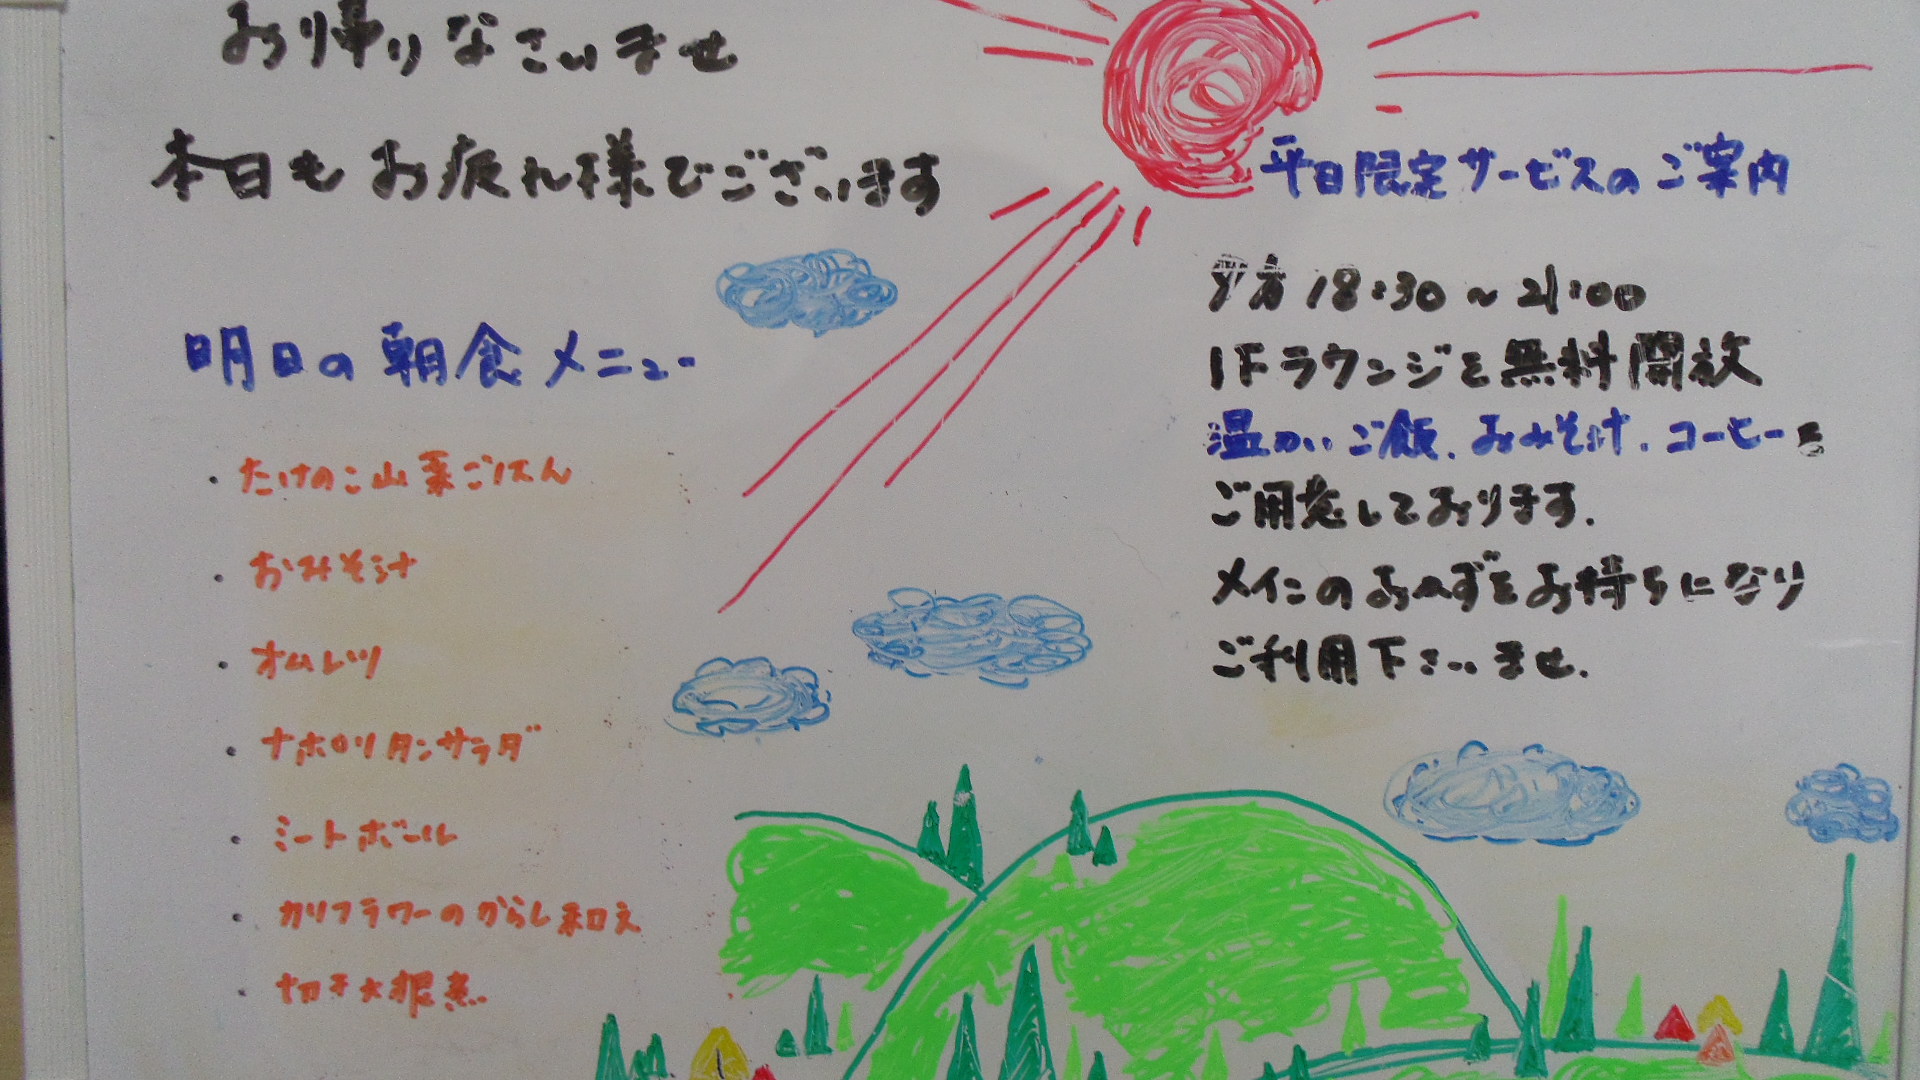 お帰りなさいませ
本日もお疲れ様でございます
明日の朝食メニュー
・たけのこ山菜ごはん
・おみそ汁
・オムレツ
・ナポリタンサラダ
・ミートボール
・カリフラワーのからし和え
・切干大根煮
平日限定サービスのご案内
夕方 18:30～21:00
1Fラウンジを無料開放
温かいご飯、おみそ汁、コーヒーを
ご用意しております。
メインのおかずをお持ちになり
ご利用下さいませ。